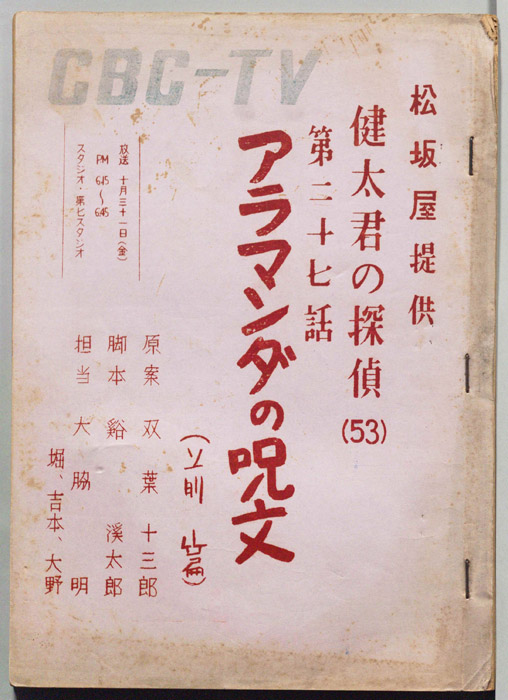 CBC-TV
松坂屋提供
健太君の探偵(53)
第二十七話
アラマンダの呪文
(前篇)
原案 双葉十三郎
脚本 谿 溪太郎
担当 大脇 明
堀、吉本、大野
放送 十月三十一日(金)
PM 6.15〜6.45
スタジオ・第七スタジオ